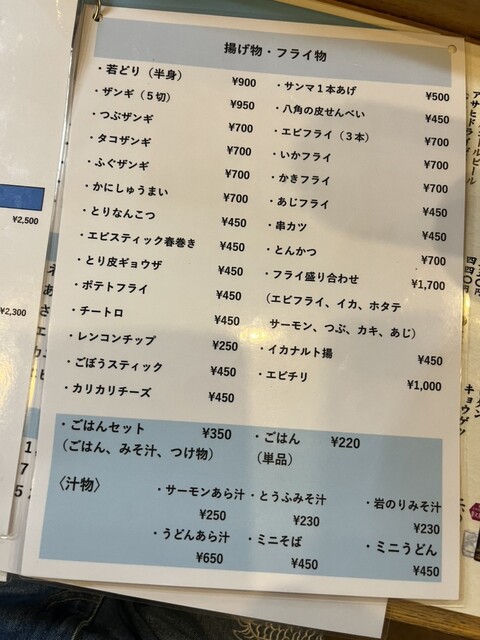 揚げ物・フライ物
・若どり（半身） ¥900
・ザンギ（５切） ¥950
・つぶザンギ ¥700
・タコザンギ ¥700
・ふぐザンギ ¥700
・かにしゅうまい ¥700
・とりなんこつ ¥450
・エビスティック春巻き ¥450
・とり皮ギョウザ ¥450
・ポテトフライ ¥450
・チートロ ¥450
・レンコンチップ ¥250
・ごぼうスティック ¥450
・カリカリチーズ ¥450
・サンマ１本あげ ¥500
・八角の皮せんべい ¥450
・エビフライ（３本） ¥700
・いかフライ ¥700
・かきフライ ¥700
・あじフライ ¥450
・串カツ ¥450
・とんかつ ¥700
・フライ盛り合わせ ¥1,700
（エビフライ、イカ、ホタテ
サーモン、つぶ、カキ、あじ）
・イカナルト揚 ¥450
・エビチリ ¥1,000
・ごはんセット ¥350
（ごはん、みそ汁、つけ物）
・ごはん ¥220
（単品）
〈汁物〉
・サーモンあら汁 ・とうふみそ汁 ・岩のりみそ汁
¥250 ¥230 ¥230
・うどんあら汁 ・ミニそば ・ミニうどん
¥650 ¥450 ¥450
¥2,500
¥2,300